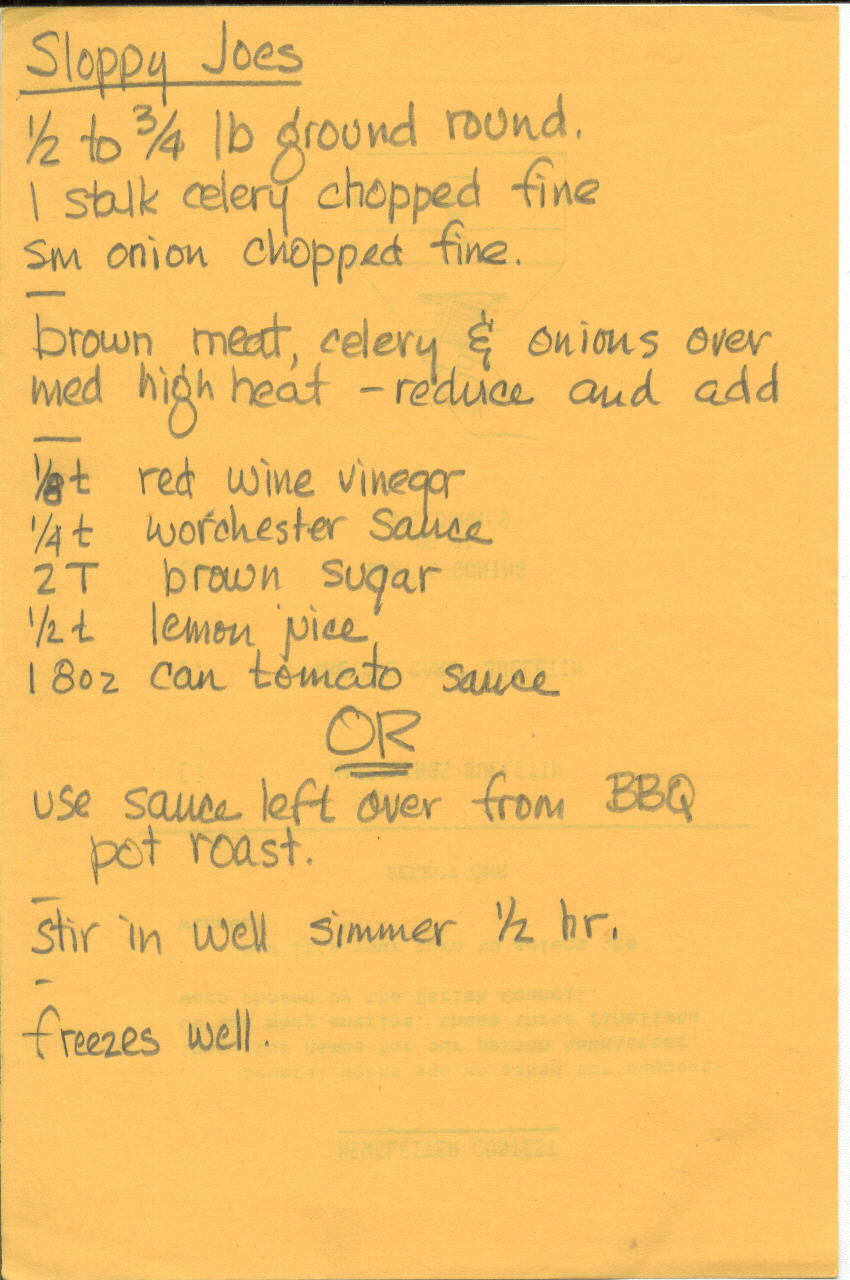 Sloppy Joes
1/2 to 3/4 lb ground round.
1 stalk celery chopped fine
sm onion chopped fine.
—
brown meat, celery & onions over
med high heat – reduce and add
—
1/8 t red wine vinegar
1/4 t worchester sauce
2 T brown sugar
1/2 t lemon juice
1 8oz can tomato sauce
OR
use sauce left over from BBQ
pot roast.
—
stir in well simmer 1/2 hr.
-
freezes well.